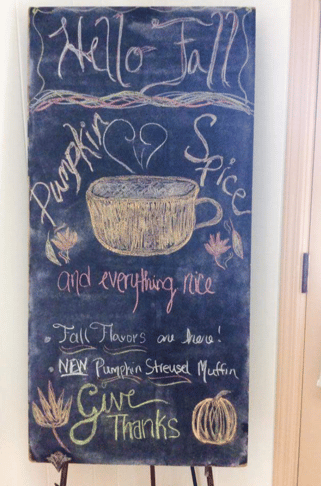 Hello Fall
Pumpkin Spice
and everything nice
Fall Flavors are here!
NEW Pumpkin Streusel Muffin
Give
Thanks